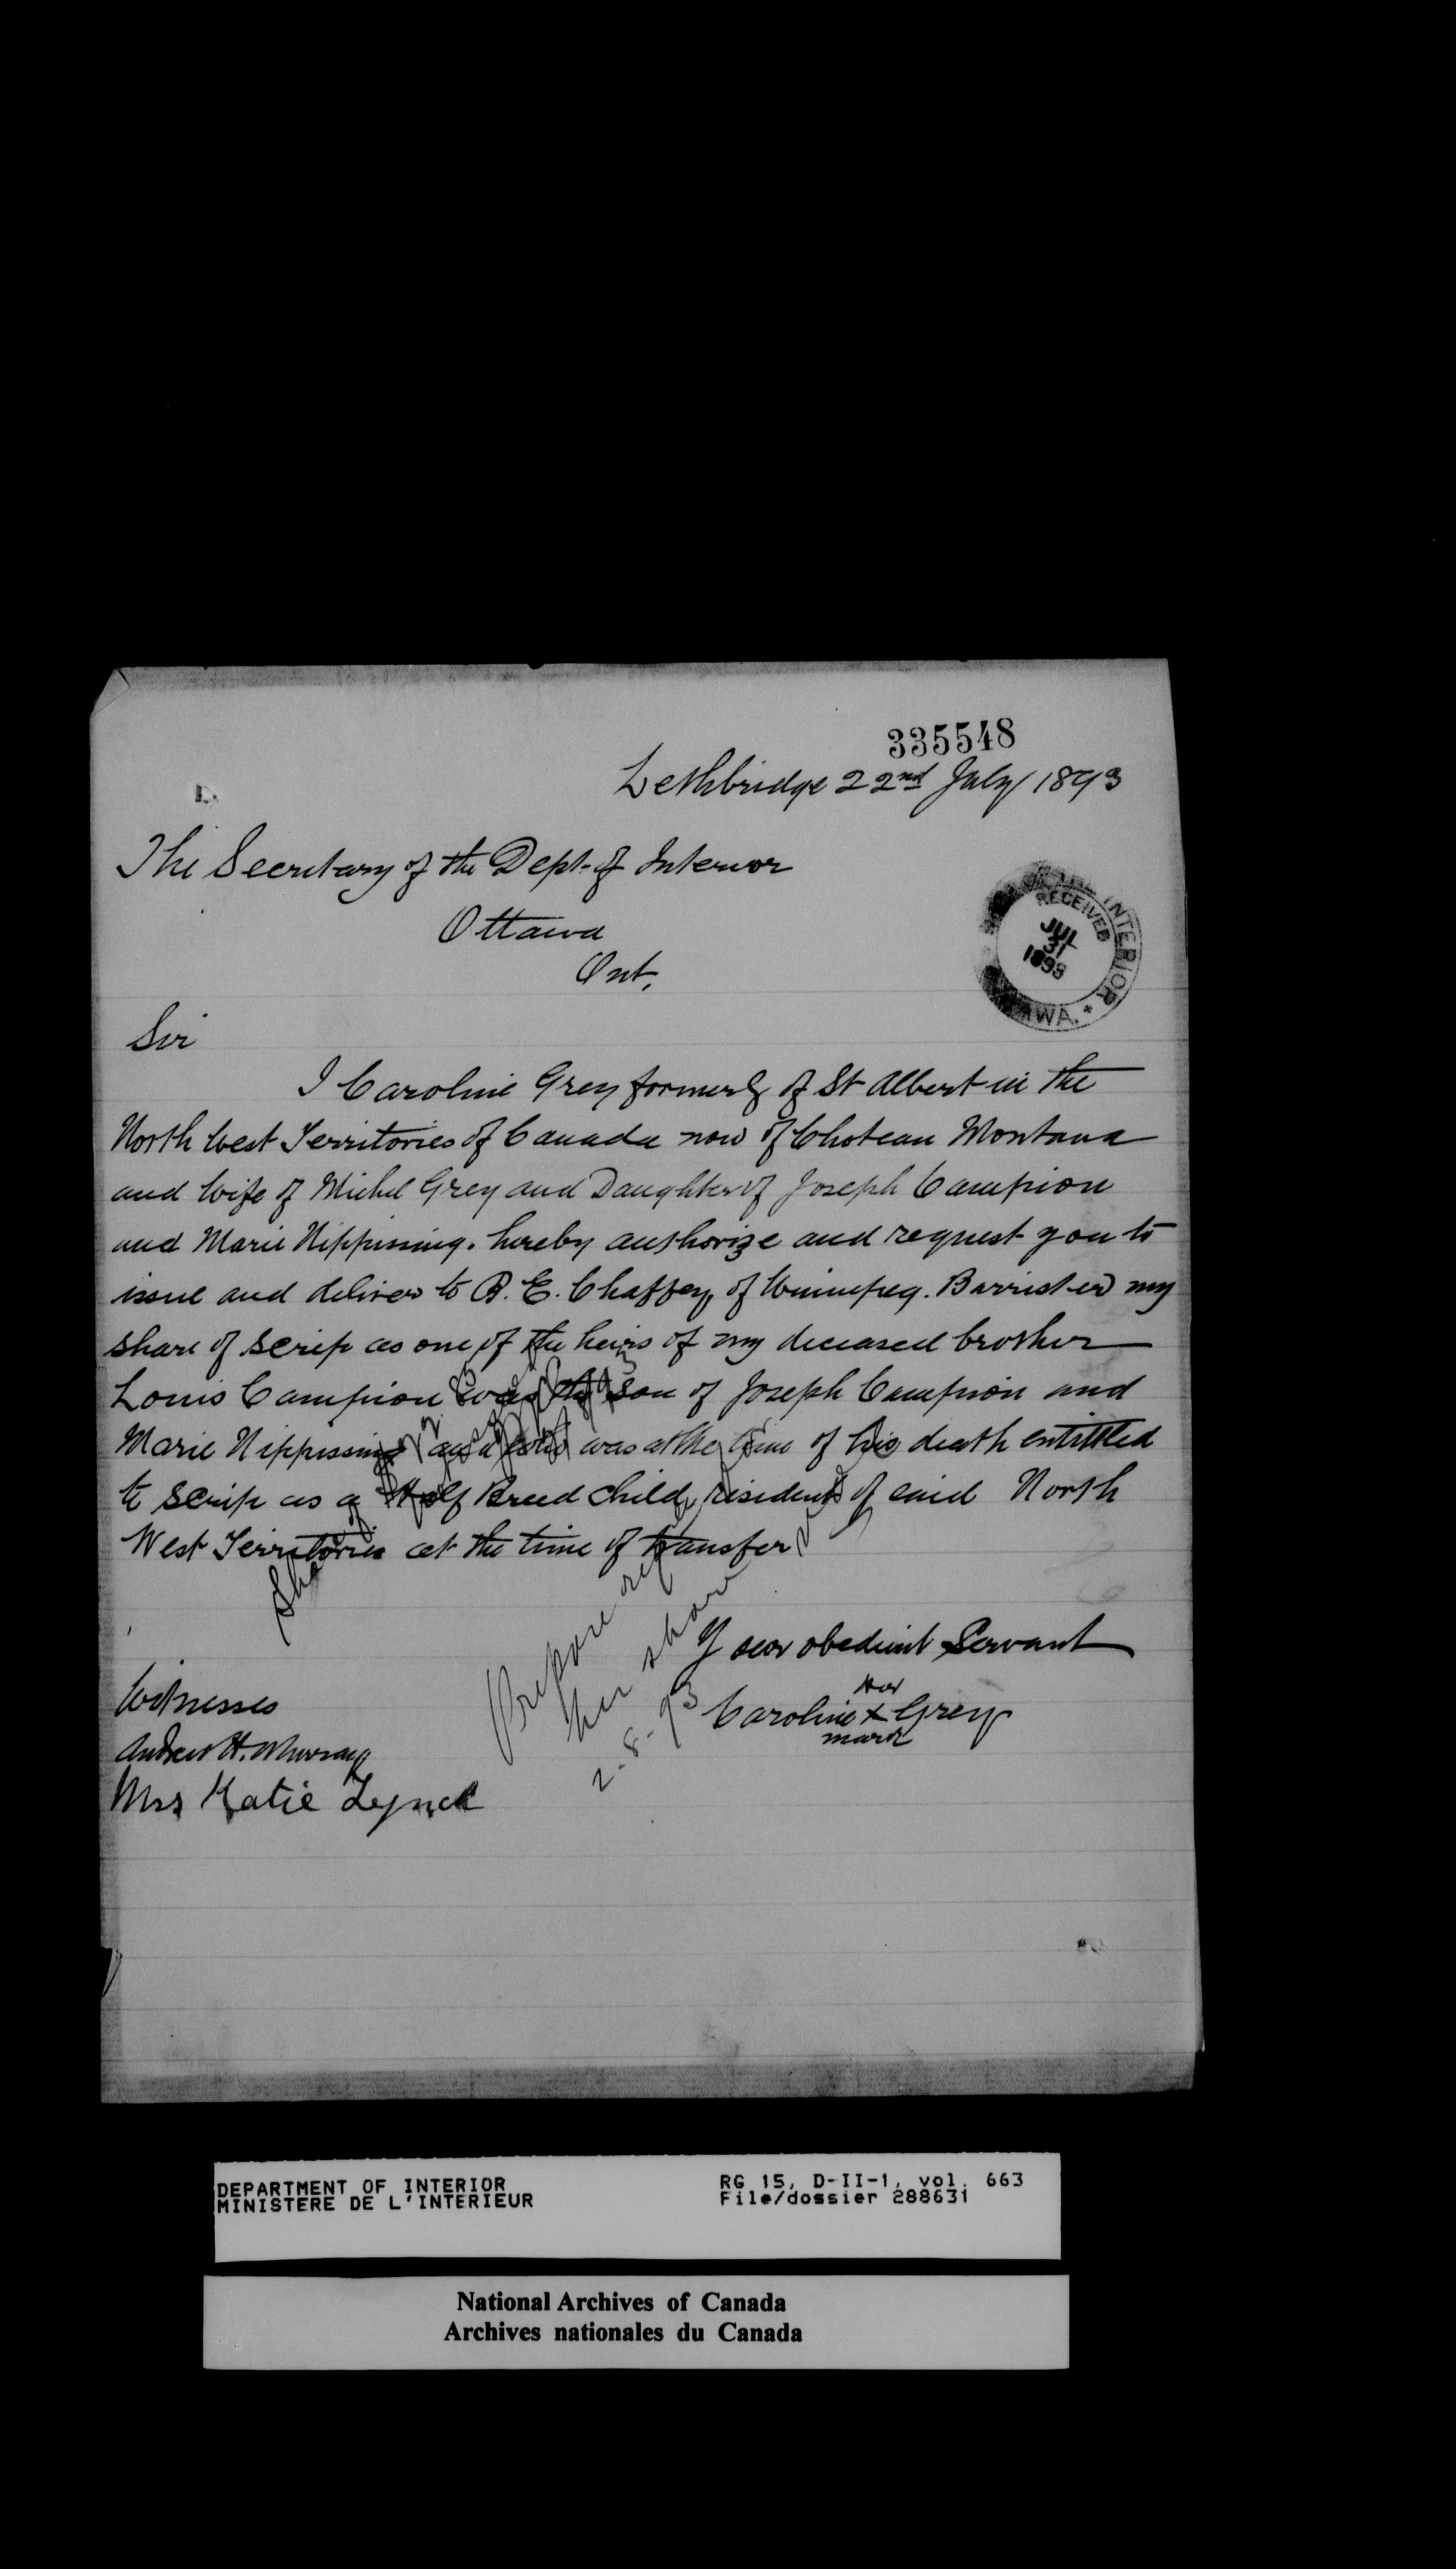 335548
Lethbridge 22nd July 1893
The Secretary of the Dept. of Interior
Ottawa
Ont.
INTERIOR
RECEIVED
JUL
31
1893
WA. *
Sir
I Caroline Grey formerly of St Albert in the
North West Territories of Canada now of Choteau Montana
and Wife of Michel Grey and Daughter of Joseph Campion
and Marie Nippissing. hereby authorize and request you to
issue and deliver to B. E. Chaffey, of Winnipeg. Barrister my
share of scrip as one of the heirs of my deceased brother
Louis Campion was the son of Joseph Campion and
Marie Nippissing and who was at the time of his death entittled
to scrip as a Half Breed child, resident of said North
West Territories at the time of transfer
Prepare
her share
2-8-93
Your obedient Servant
Her
Caroline X Grey
mark
Witnesses
Andrew H. Murray
Mrs Katie Lynch
DEPARTMENT OF INTERIOR
MINISTERE DE L'INTERIEUR
RG 15, D-II-1, vol. 663
File/dossier 288631
National Archives of Canada
Archives nationales du Canada